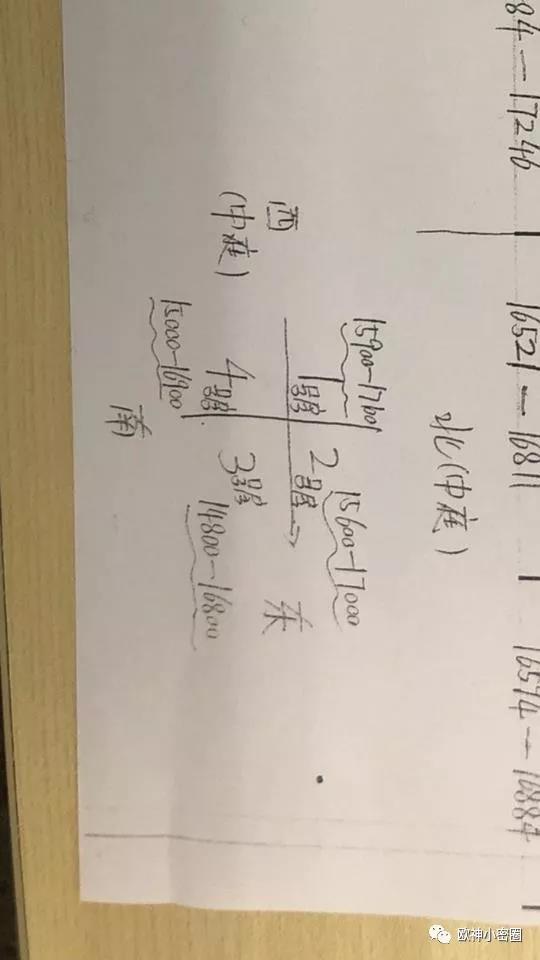 84—17246 16521—16811 16574—16884
北(中庭)
15900-17600 15600-17000
1號 2號
西
(中庭)
东
4號 3號
15000-16900 14800-16800
南
欧神小密圈